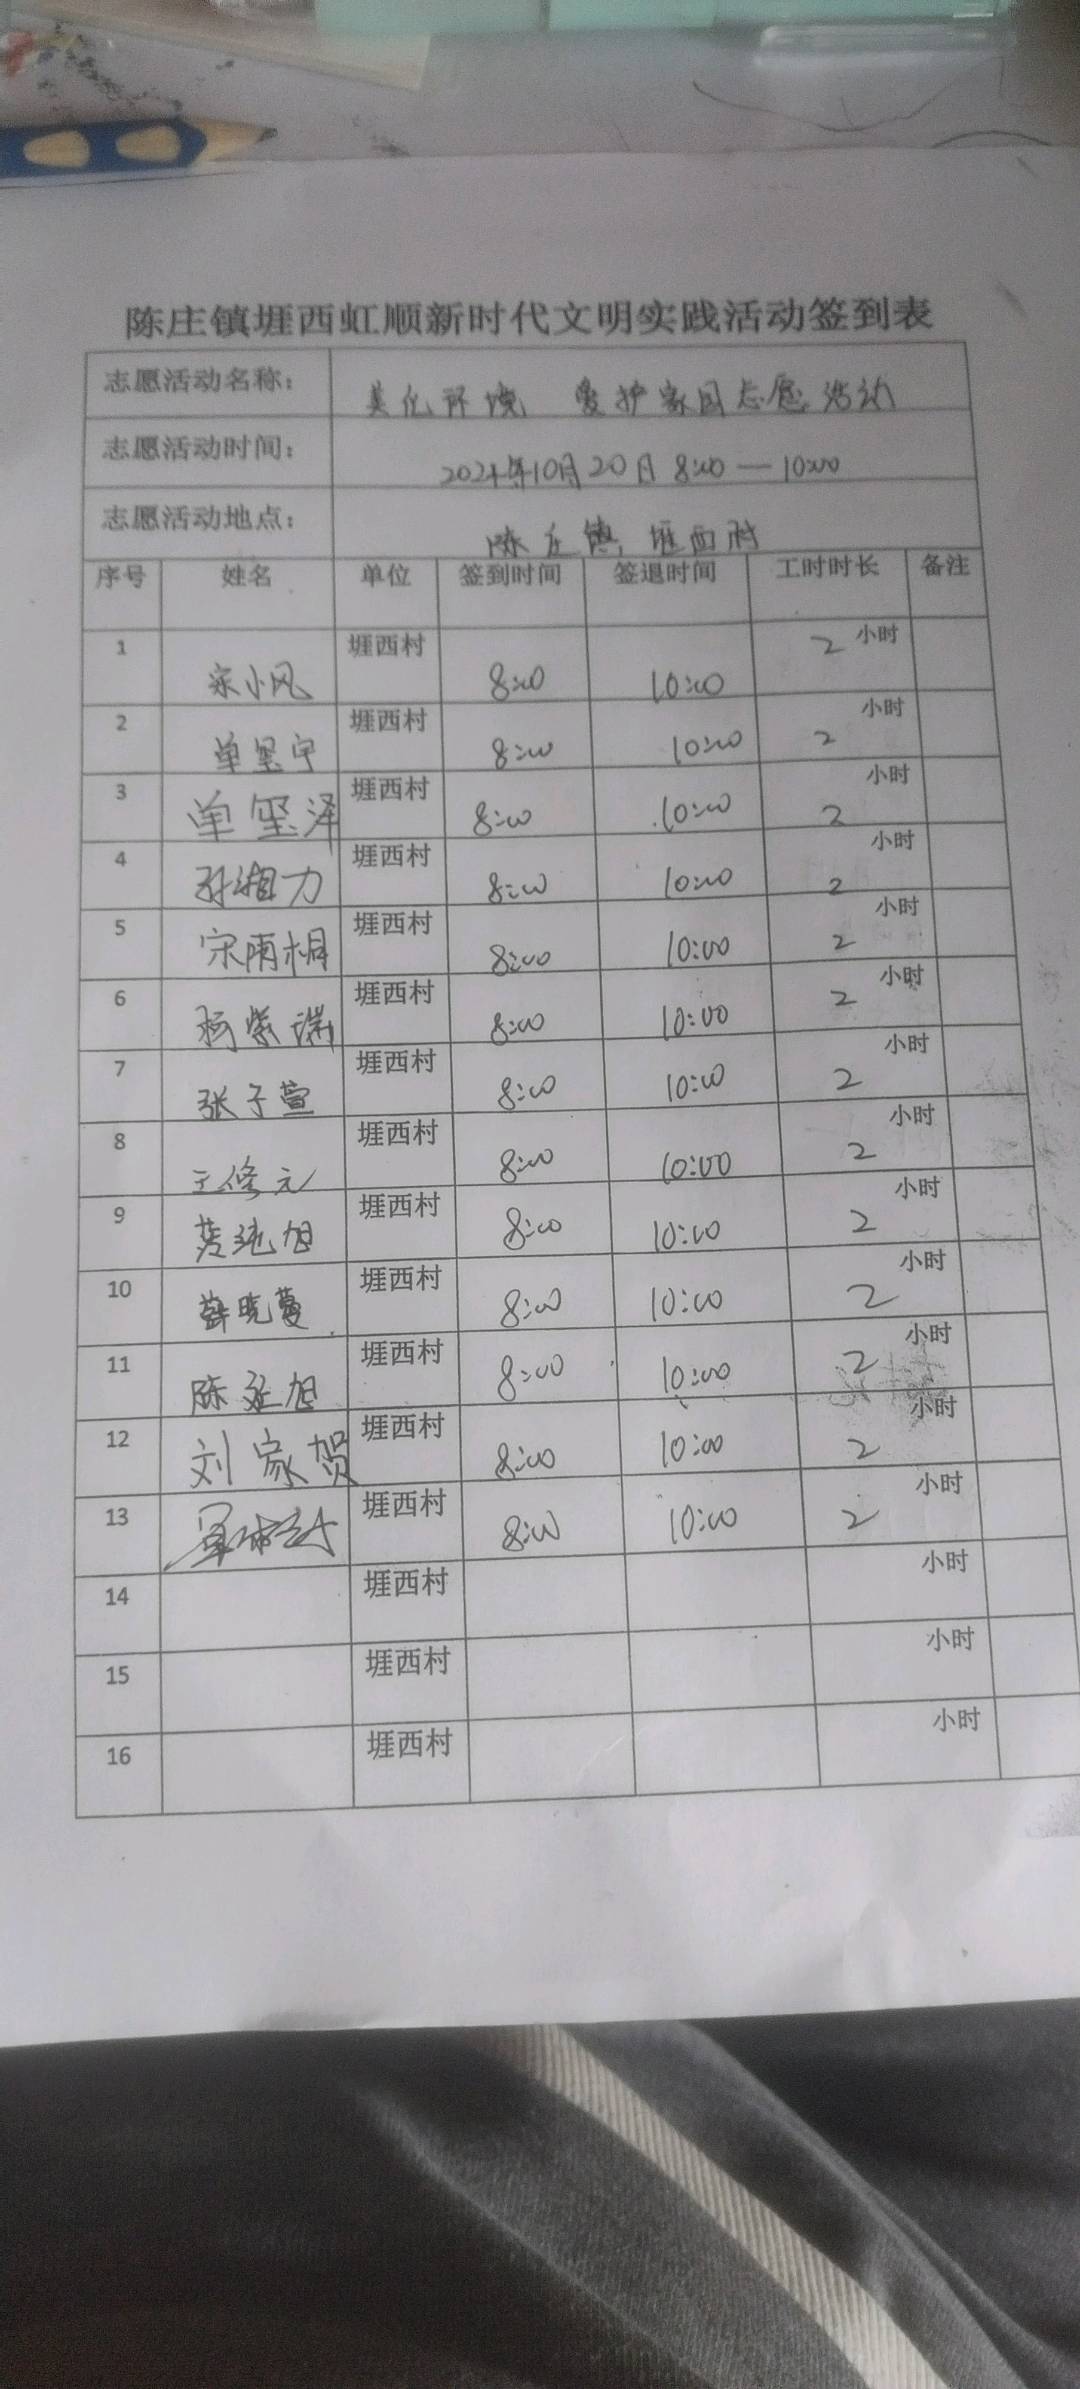 陈庄镇堐西虹顺新时代文明实践活动签到表
志愿活动名称： 美化环境 爱护家园志愿活动
志愿活动时间： 2024年10月20日 8:00—10:00
志愿活动地点： 陈庄镇堐西村
序号 姓名 单位 签到时间 签退时间 工时时长 备注
1 宋小风 堐西村 8:00 10:00 2小时
2 单玺宇 堐西村 8:00 10:00 2小时
3 单玺泽 堐西村 8:00 10:00 2小时
4 孙湘力 堐西村 8:00 10:00 2小时
5 宋雨桐 堐西村 8:00 10:00 2小时
6 杨紫瑞 堐西村 8:00 10:00 2小时
7 张子萱 堐西村 8:00 10:00 2小时
8 王修元 堐西村 8:00 10:00 2小时
9 堐西村 8:00 10:00 2小时
10 薛晓蔓 堐西村 8:00 10:00 2小时
11 陈延旭 堐西村 8:00 10:00 2小时
12 刘家贺 堐西村 8:00 10:00 2小时
13 堐西村 8:00 10:00 2小时
14 堐西村 小时
15 堐西村 小时
16 堐西村 小时